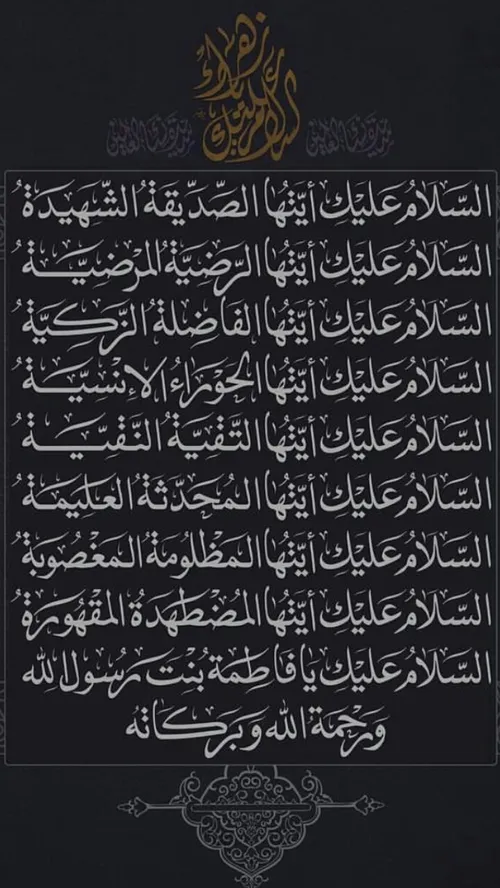 السلام عليك يا زهراء
السَّلَامُ عَلَيْكِ أَيَّتُهَا الصِّدِّيقَةُ الشَّهِيدَةُ
السَّلَامُ عَلَيْكِ أَيَّتُهَا الرَّضِيَّةُ المَرْضِيَّةُ
السَّلَامُ عَلَيْكِ أَيَّتُهَا الفَاضِلَةُ الزَّكِيَّةُ
السَّلَامُ عَلَيْكِ أَيَّتُهَا الحَوْرَاءُ الإِنْسِيَّةُ
السَّلَامُ عَلَيْكِ أَيَّتُهَا التَّقِيَّةُ النَّقِيَّةُ
السَّلَامُ عَلَيْكِ أَيَّتُهَا المُحَدَّثَةُ العَلِيمَةُ
السَّلَامُ عَلَيْكِ أَيَّتُهَا المَظْلُومَةُ المَغْصُوبَةُ
السَّلَامُ عَلَيْكِ أَيَّتُهَا المُضْطَهَدَةُ المَقْهُورَةُ
السَّلَامُ عَلَيْكِ يَا فَاطِمَةُ بِنْتَ رَسُولِ اللهِ
وَرَحْمَةُ اللهِ وَبَرَكَاتُهُ